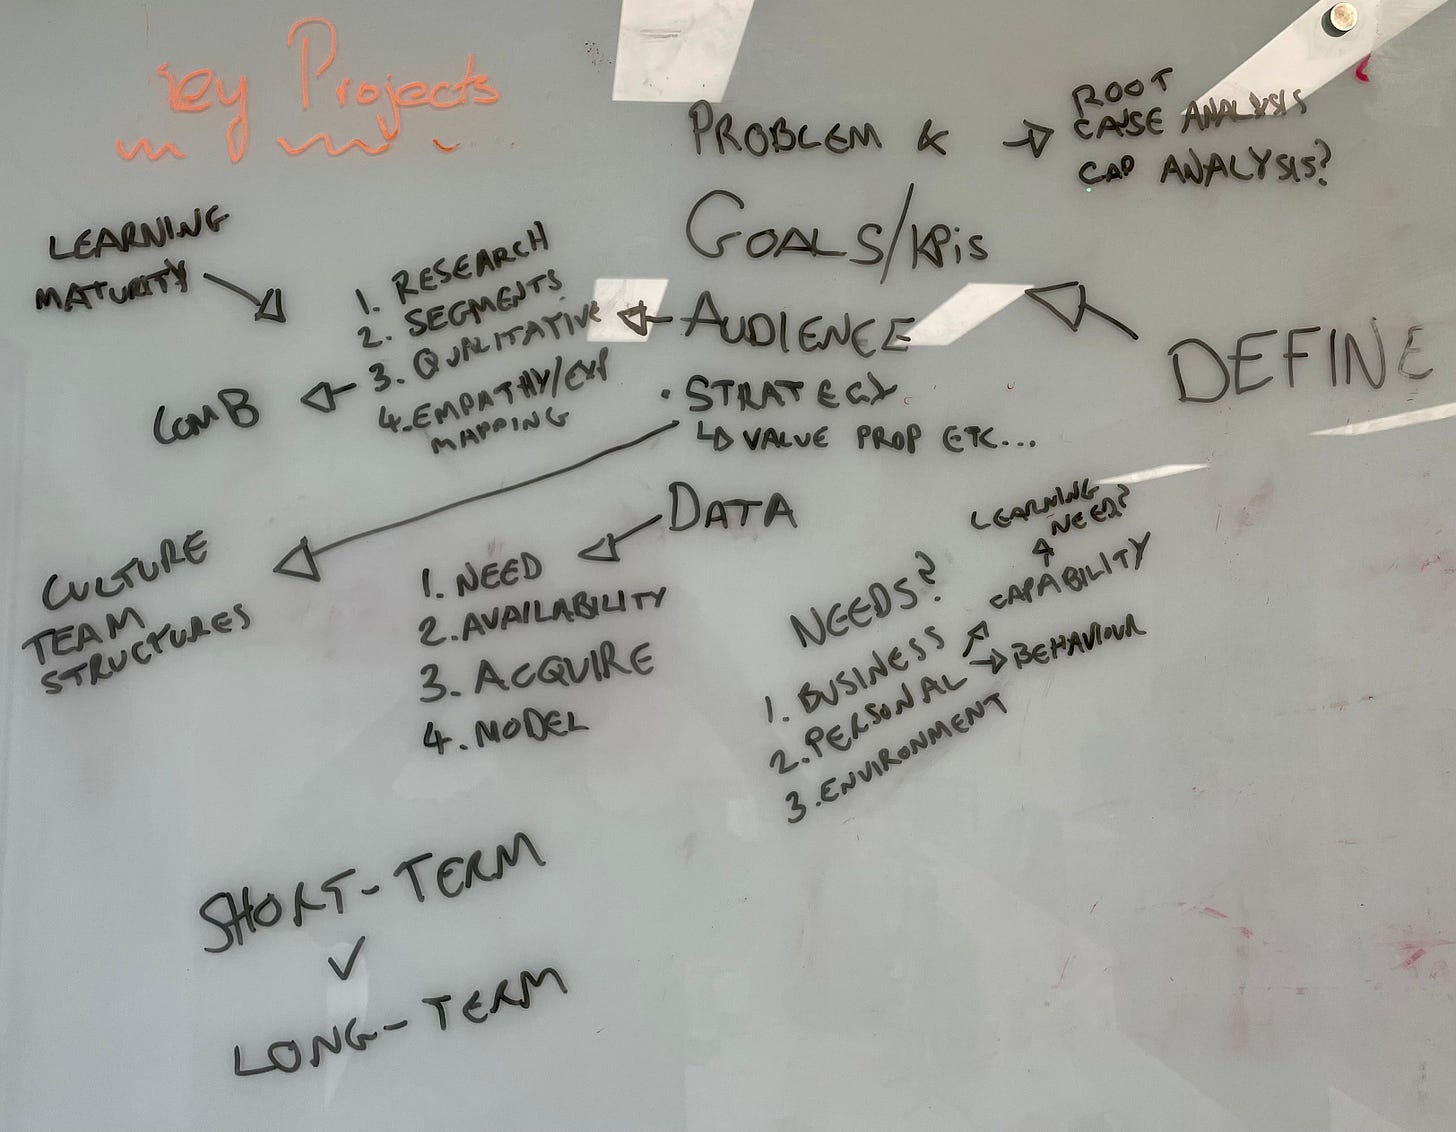 Key Projects
PROBLEM &
GOALS/KPis
AUDIENCE
• STRATEGY
↳ VALUE PROP ETC...
DATA
→ ROOT
CAUSE ANALYSIS
GAP ANALYSIS?
DEFINE
LEARNING
MATURITY
1. RESEARCH
2. SEGMENTS
3. QUALITATIVE
4. EMPATHY/EXP
MAPPING
COM B
CULTURE
TEAM
STRUCTURES
1. NEED
2. AVAILABILITY
3. ACQUIRE
4. MODEL
NEEDS?
1. BUSINESS
2. PERSONAL
3. ENVIRONMENT
CAPABILITY
BEHAVIOUR
LEARNING
NEED?
SHORT-TERM
✓
LONG-TERM